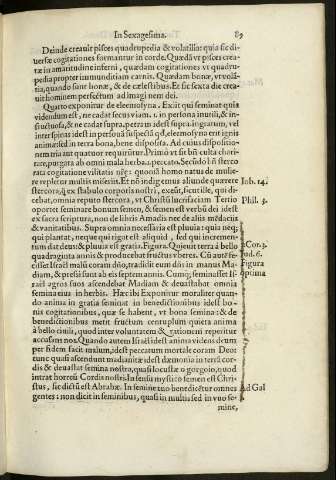 In Sexagesima. 89
Deinde creauit pisces quadrupedia & volatilia: quia sic di-
uersæ cogitationes formantur in corde. Quædā vt pisces crea-
tæ in amaritudine inferni, quædam cogitationes vt quadru-
pedia propter immunditiam carnis. Quædam bonæ, vt volā-
tia, quando sunt bonæ, & de cælestibus. Et sic sexta die crea-
uit hominem perfectum ad imaginem dei.
Quarto exponitur de eleemosyna. Exiit qui seminat quia
videndum est, ne cadat secus viam. i. in persona inutili, & in-
fructuosa, & ne cadat supra petram idest supra ingratum, vel
inter spinas idest in persona suspecta qd, eleemosyna erit ignis
anima: sed in terra bona, bene disposita. Ad cuius dispositio-
nem tria aut quatuor requirūtur. Primò vt sit bn̄ culta charita-
te, purgita ab omni mala herba. i. peccato. Secūdo sit
rata cogitatione vilitatis nr̄ę: quoniā homo natus de mulie
re repletur multis miserijs. Et nō indigemus aliunde quærere Iob. 14.
stercora, ex stabulo corporis nostri, exeūt, sicut ille, qui di-
cebat, omnia reputo stercora, vt Christū lucrifaciam Tertio Phil. 3.
oportet seminare bonum semen, & semen est verbū dei idest
ex sacra scriptura, non de libris Amadis nec de alijs mēdacijs
& vanitatibus. Supra omnia necessaria est pluuia: quia neq;
qui plantat, neque qui rigat est aliquid, sed qui incremen-
tum dat deus: & pluuia est gratia. Figura. Quieuit terra à bello 1. Cor. 3.
quadraginta annis & producebat fructus vberes. Cū autē fe- Iud. 6.
cisset Israel malū coram dño, tradidit eum dñs in manus Ma- Figura
diam, & pressi sunt ab eis septem annis. Cumq; seminasset Is- optima
rael agros suos ascendebat Madiam & deuastabat omnia
semina eius in herbis. Hæc ibi Exponitur moraliter quan-
do anima in gratia seminat in benedictionibus idest bo-
nis cogitationibus, quæ se habent, vt bona semina: & de
benedictionibus metit fructum centuplum quieta anima
à bello ciuili, quod inter voluntatem & rationem reperitur
accusam nos. Quando autem Israel idest anima videns deum
per fidem facit malum, idest peccatum mortale coram Deo:
tunc quasi ascendunt madianitæ idest dæmonia in terra cor-
dis & deuastat semina nostra, quasi locustæ o gorgoio, quod
intrat horreū Cordis nostri In sensu mystico semen est Chri-
stus, sic dictū est Abrahæ. In semine tuo benedicētur omnes Ad Gal
gentes: non dicit in seminibus, quasi in multis sed in vno se-
mine,